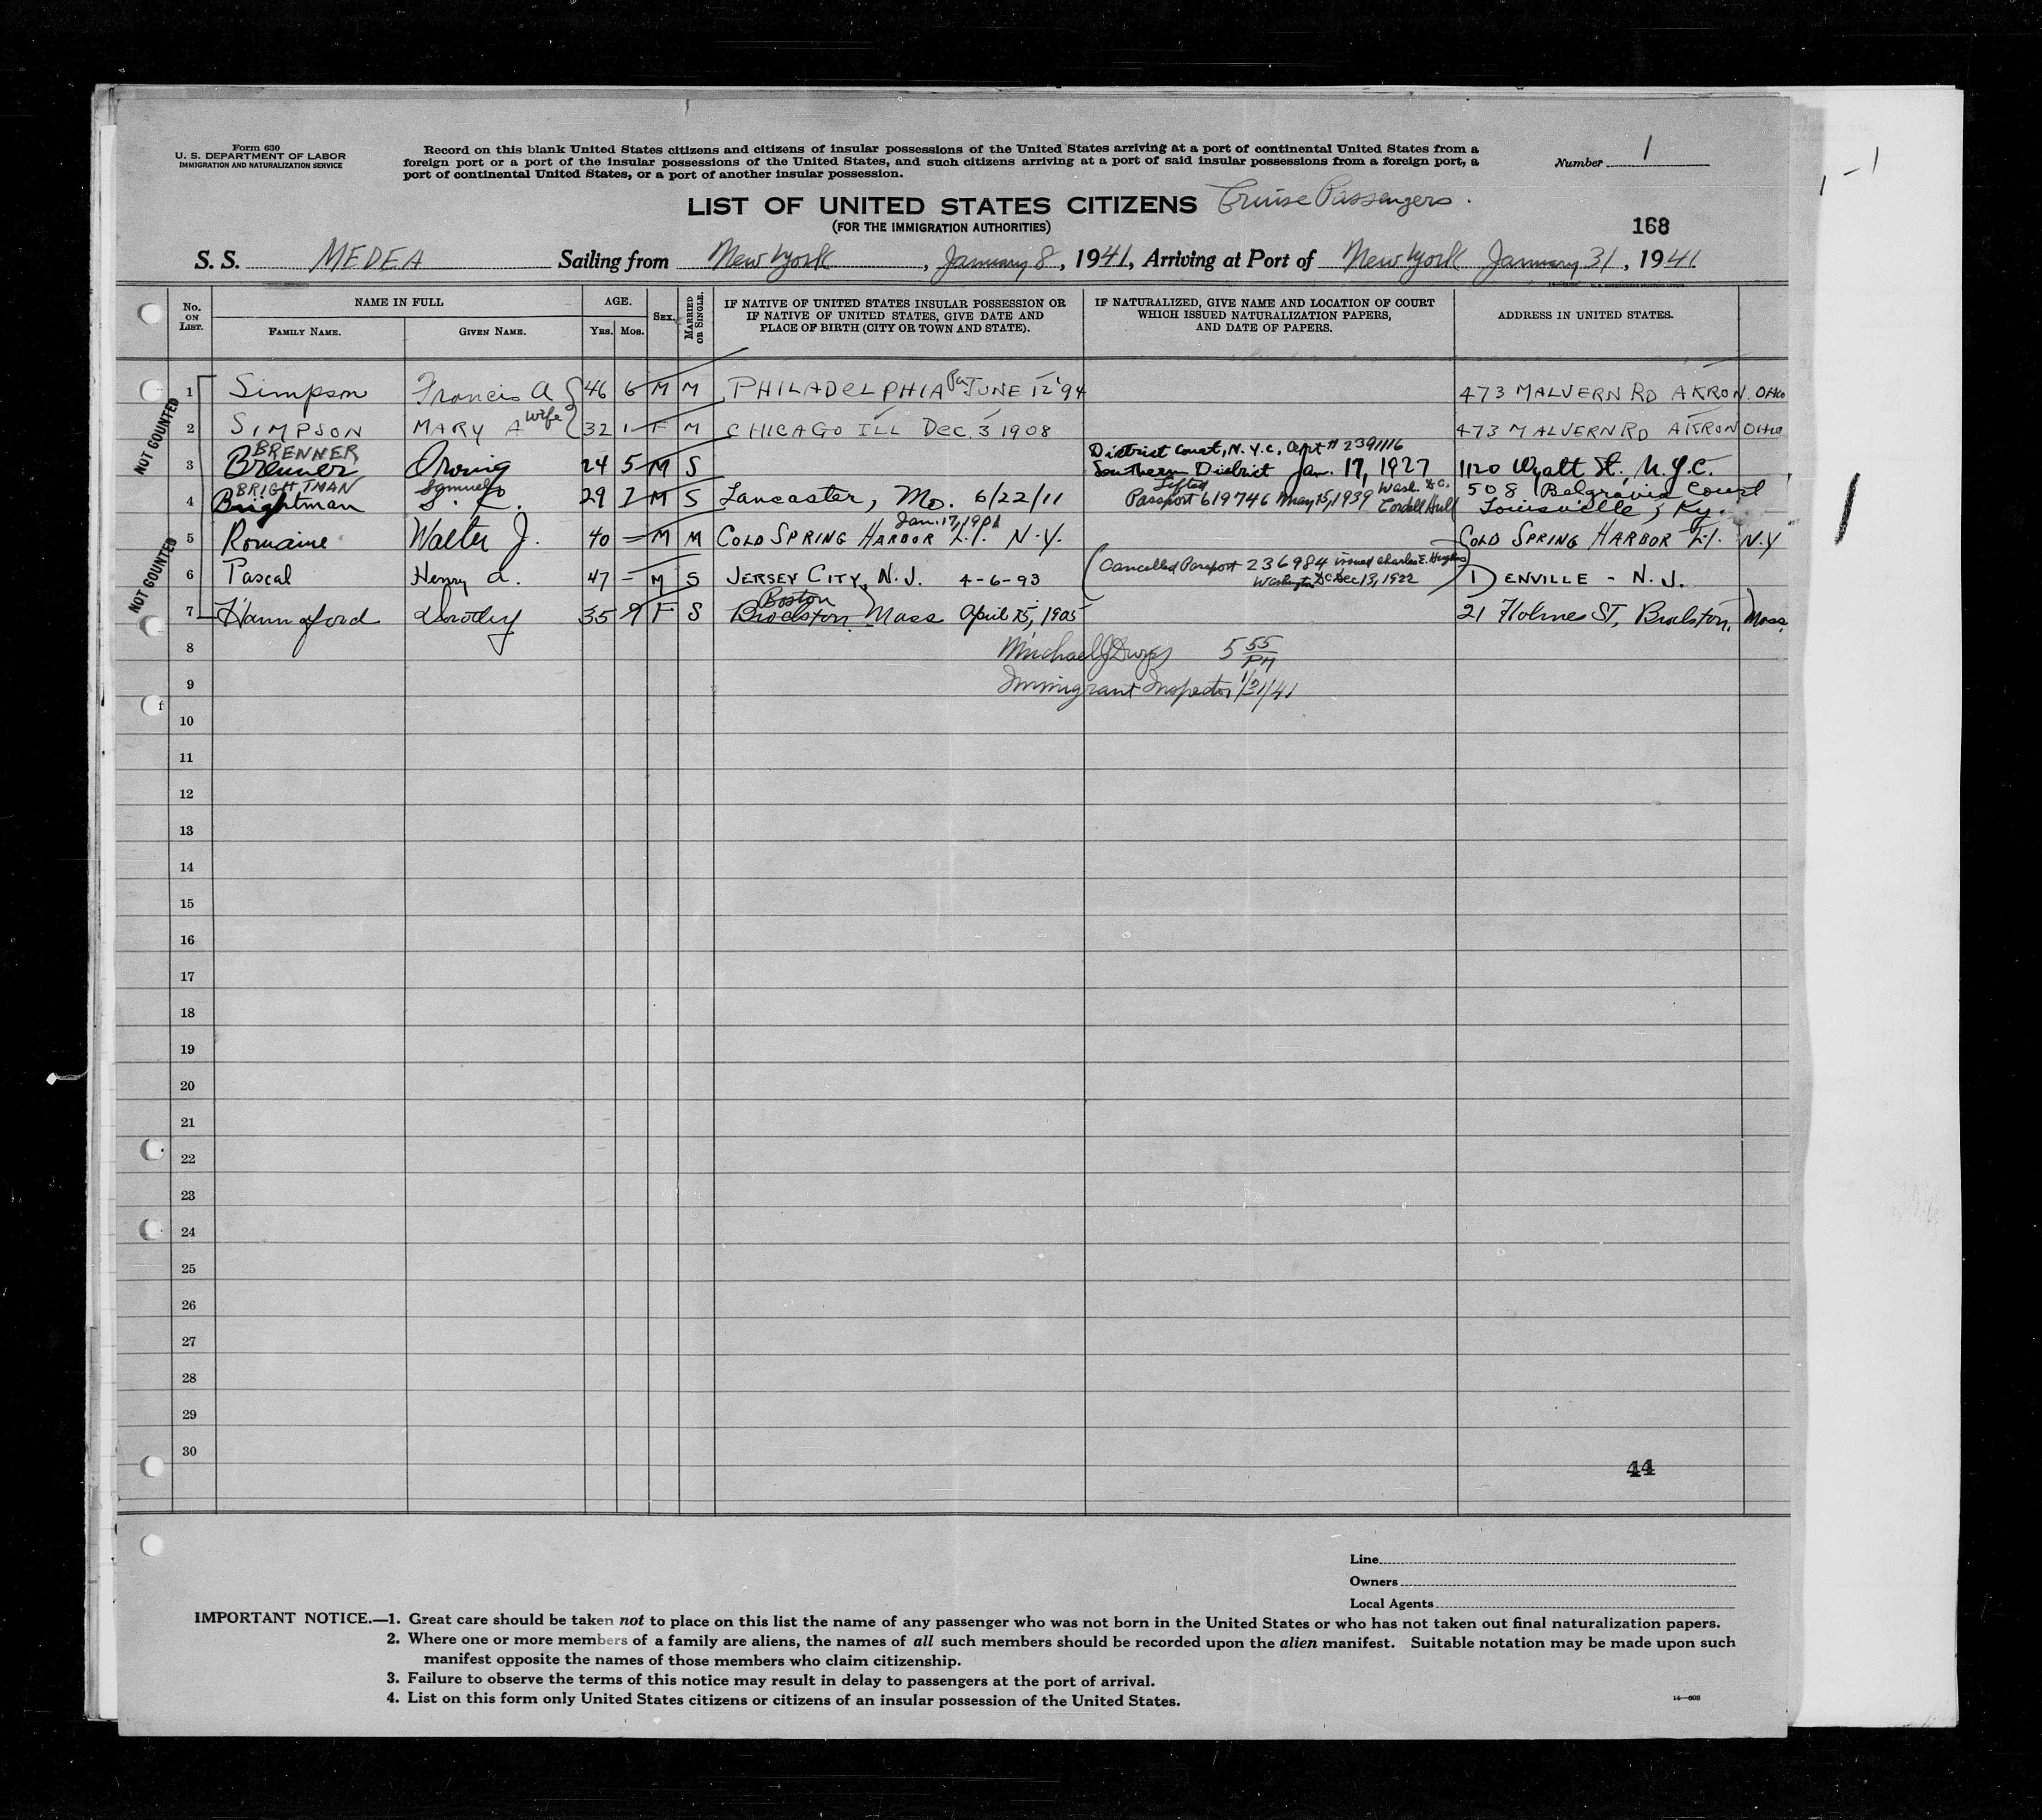 Form 630
U. S. DEPARTMENT OF LABOR
IMMIGRATION AND NATURALIZATION SERVICE
Record on this blank United States citizens and citizens of insular possessions of the United States arriving at a port of continental United States from a
foreign port or a port of the insular possessions of the United States, and such citizens arriving at a port of said insular possessions from a foreign port, a
port of continental United States, or a port of another insular possession.
Number 1
1 - 1
LIST OF UNITED STATES CITIZENS Cruise Passengers.
(FOR THE IMMIGRATION AUTHORITIES)
168
S. S. MEDEA Sailing from New York, January 8, 1941, Arriving at Port of New York January 31, 1941
No. ON LIST.
NAME IN FULL
FAMILY NAME.
GIVEN NAME.
AGE.
YRS. MOS.
SEX.
MARRIED OR SINGLE.
IF NATIVE OF UNITED STATES INSULAR POSSESSION OR
IF NATIVE OF UNITED STATES, GIVE DATE AND
PLACE OF BIRTH (CITY OR TOWN AND STATE).
IF NATURALIZED, GIVE NAME AND LOCATION OF COURT
WHICH ISSUED NATURALIZATION PAPERS,
AND DATE OF PAPERS.
ADDRESS IN UNITED STATES.
NOT COUNTED
NOT COUNTED
1 Simpson Francis A 46 6 M M PHILADELPHIA Pa JUNE 12 '94 473 MALVERN RD AKRON. OHIO
2 SIMPSON MARY A wife 32 1 F M CHICAGO ILL DEC. 3 1908 473 MALVERN RD AKRON OHIO
BRENNER District Court, N.Y.C. # 2391116
3 Brenner Irving 24 5 M S Southern District Jan. 17, 1927 1120 Wyatt St. N.Y.C.
BRIGHTMAN Samuel Lifted Wash. D.C. 508 Belgravia Court
4 Brightman S. C. 29 7 M S Lancaster, Mo. 6/22/11 Passport 619746 May 15, 1939 Cordell Hull Louisville, Ky.
Jan. 17, 1901
5 Romaine Walter J. 40 - M M COLD SPRING HARBOR L.I. N.Y. COLD SPRING HARBOR L.I. N.Y
(Cancelled Passport 236984 issued Charles E. Hughes)
6 Pascal Henry A. 47 - M S JERSEY CITY, N.J. 4-6-93 Washington DC Dec 13, 1922 DENVILLE - N.J.
Boston
7 Hannaford Dorothy 35 9 F S Mass April 15, 1905 21 Holmes St, Mass.
8 Michael J 5 55 PM
9 Immigrant Inspector 1/31/41
10
11
12
13
14
15
16
17
18
19
20
21
22
23
24
25
26
27
28
29
30
44
Line
Owners
Local Agents
IMPORTANT NOTICE.—1. Great care should be taken not to place on this list the name of any passenger who was not born in the United States or who has not taken out final naturalization papers.
2. Where one or more members of a family are aliens, the names of all such members should be recorded upon the alien manifest. Suitable notation may be made upon such
manifest opposite the names of those members who claim citizenship.
3. Failure to observe the terms of this notice may result in delay to passengers at the port of arrival.
4. List on this form only United States citizens or citizens of an insular possession of the United States.
14—608